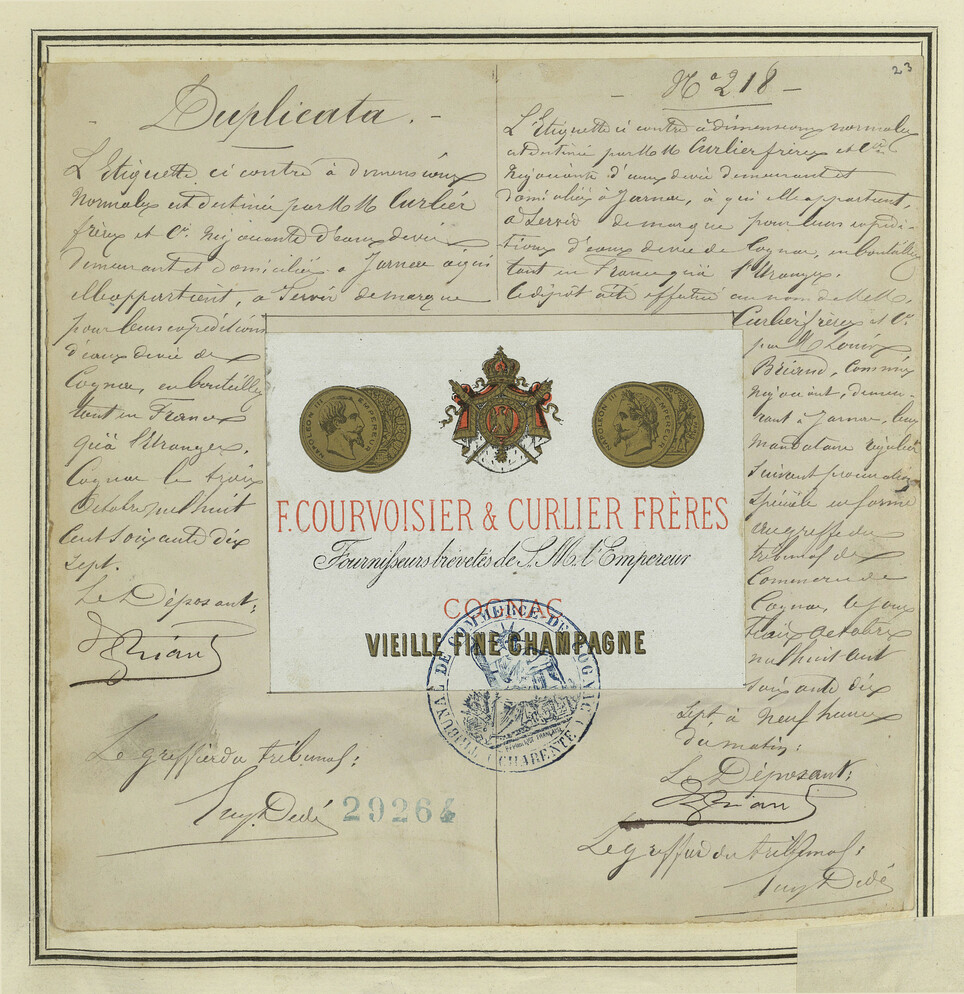 23
Duplicata.
L'Etiquette ci contre à dimensions
Normales est destinée par MM Curlier
frères et Cie Négociants d'eaux de vie
demeurant et domiciliés à Jarnac à qui
elle appartient, à Servir de marque
pour leurs expéditions
d'eaux de vie de
Cognac, en bouteilles
tant en France
qu'à l'étranger.
Cognac le trois
Octobre mil huit
Cent soixante dix
Sept.
Le Déposant:
Le greffier du tribunal:
29264
No 218
L'Etiquette ci contre à dimensions normales
est destinée par MM Curlier frères et Cie
Négociants d'eaux de vie demeurant et
domiciliés à Jarnac, à qui elle appartient,
à Servir de marque pour leurs expédi-
tions d'eaux de vie de Cognac, en bouteilles
tant en France qu'à l'étranger.
Le dépôt a été effectué au nom de MM.
Curlier frères et Cie
par M Louis
Briand, Commis
Négociant, demeu-
rant à Jarnac, leur
mandataire régulier
suivant procuration
Spéciale en forme
au greffe du
tribunal de
Commerce de
Cognac, le jour
trois Octobre
mil huit cent
soixante dix
Sept à Neuf heures
du matin:
Le Déposant:
Le greffier du tribunal:
NAPOLEON III EMPEREUR
NAPOLEON III EMPEREUR
F. COURVOISIER & CURLIER FRÈRES
Fournisseurs brévetés de S. M. l'Empereur
COGNAC
VIEILLE FINE CHAMPAGNE
TRIBUNAL DE COMMERCE DE COGNAC (CHARENTE)
RÉPUBLIQUE FRANÇAISE